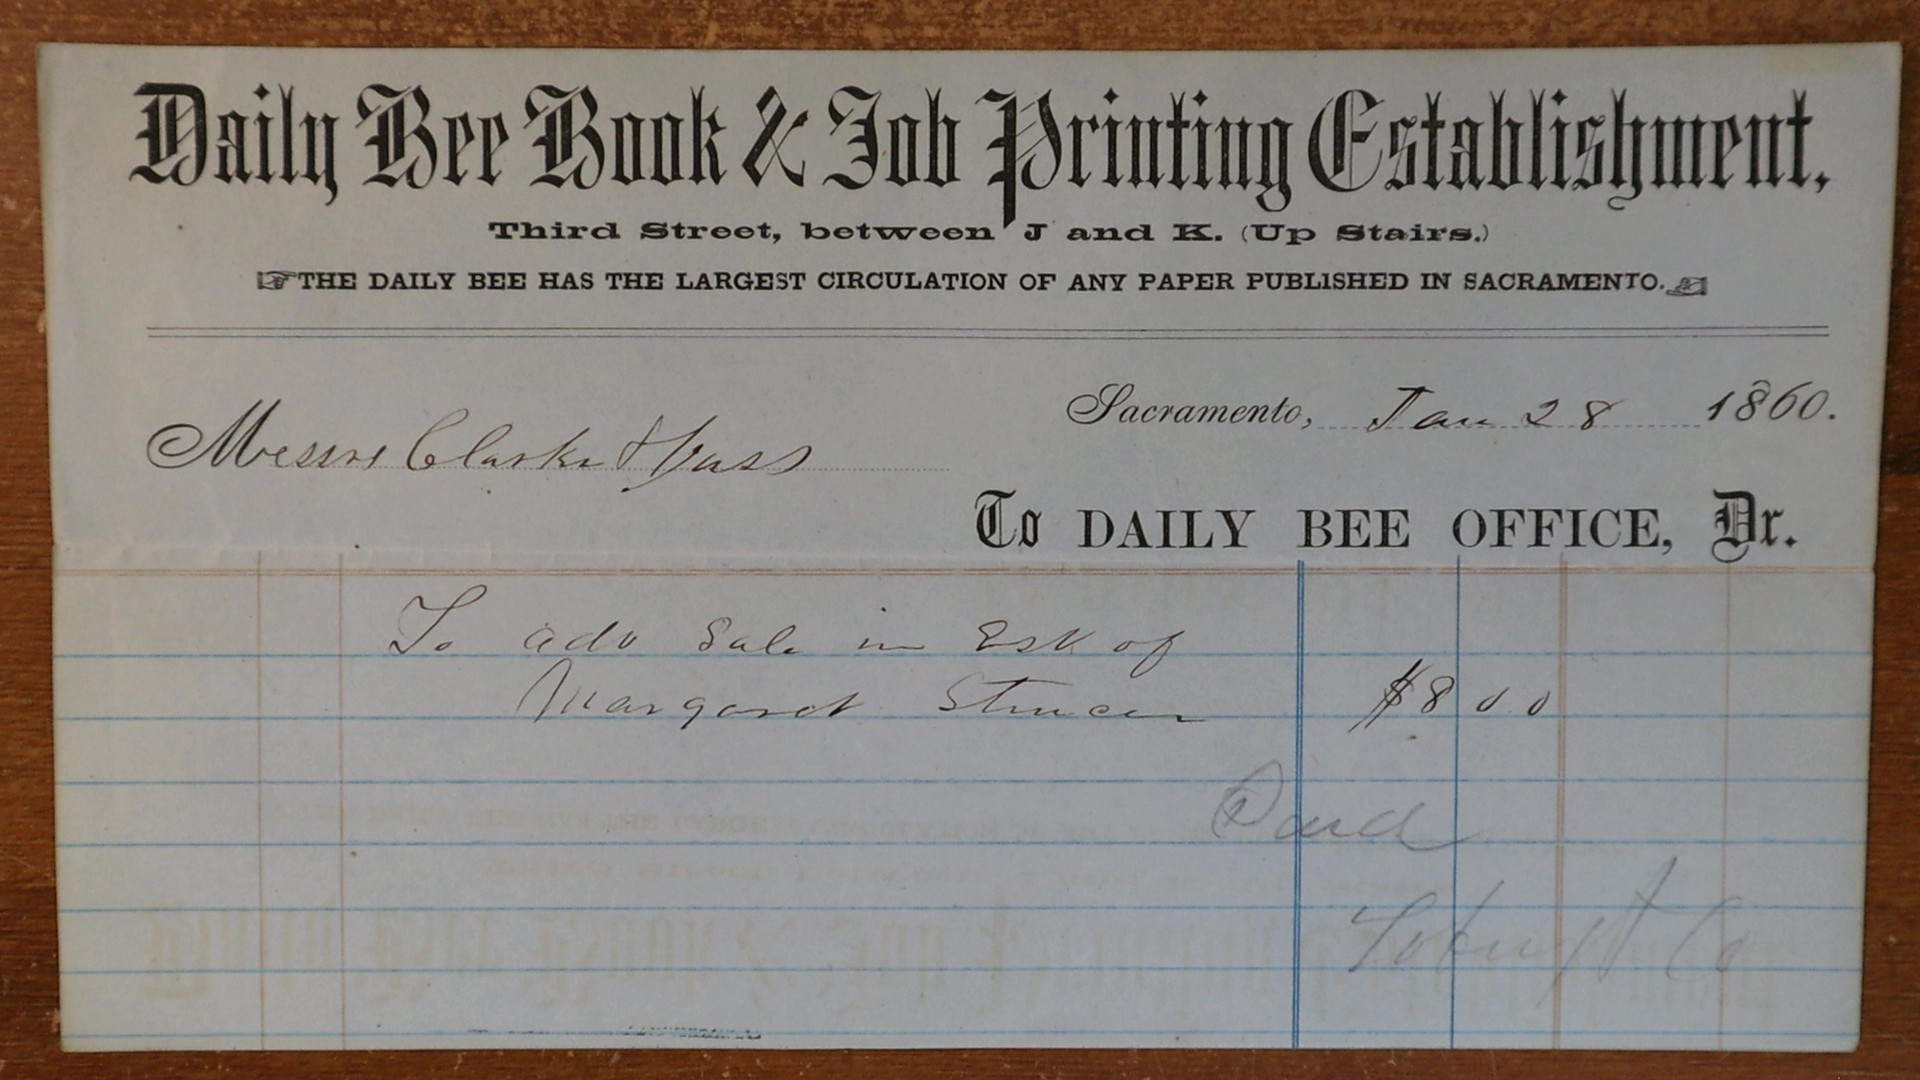 Daily Bee Book & Job Printing Establishment,
Third Street, between J and K. (Up Stairs.)
THE DAILY BEE HAS THE LARGEST CIRCULATION OF ANY PAPER PUBLISHED IN SACRAMENTO.
Sacramento, Jan 28 1860.
Messrs Clarke &
To DAILY BEE OFFICE, Dr.
To adv Sale in Est of
Margaret $8 00
Paid
& Co